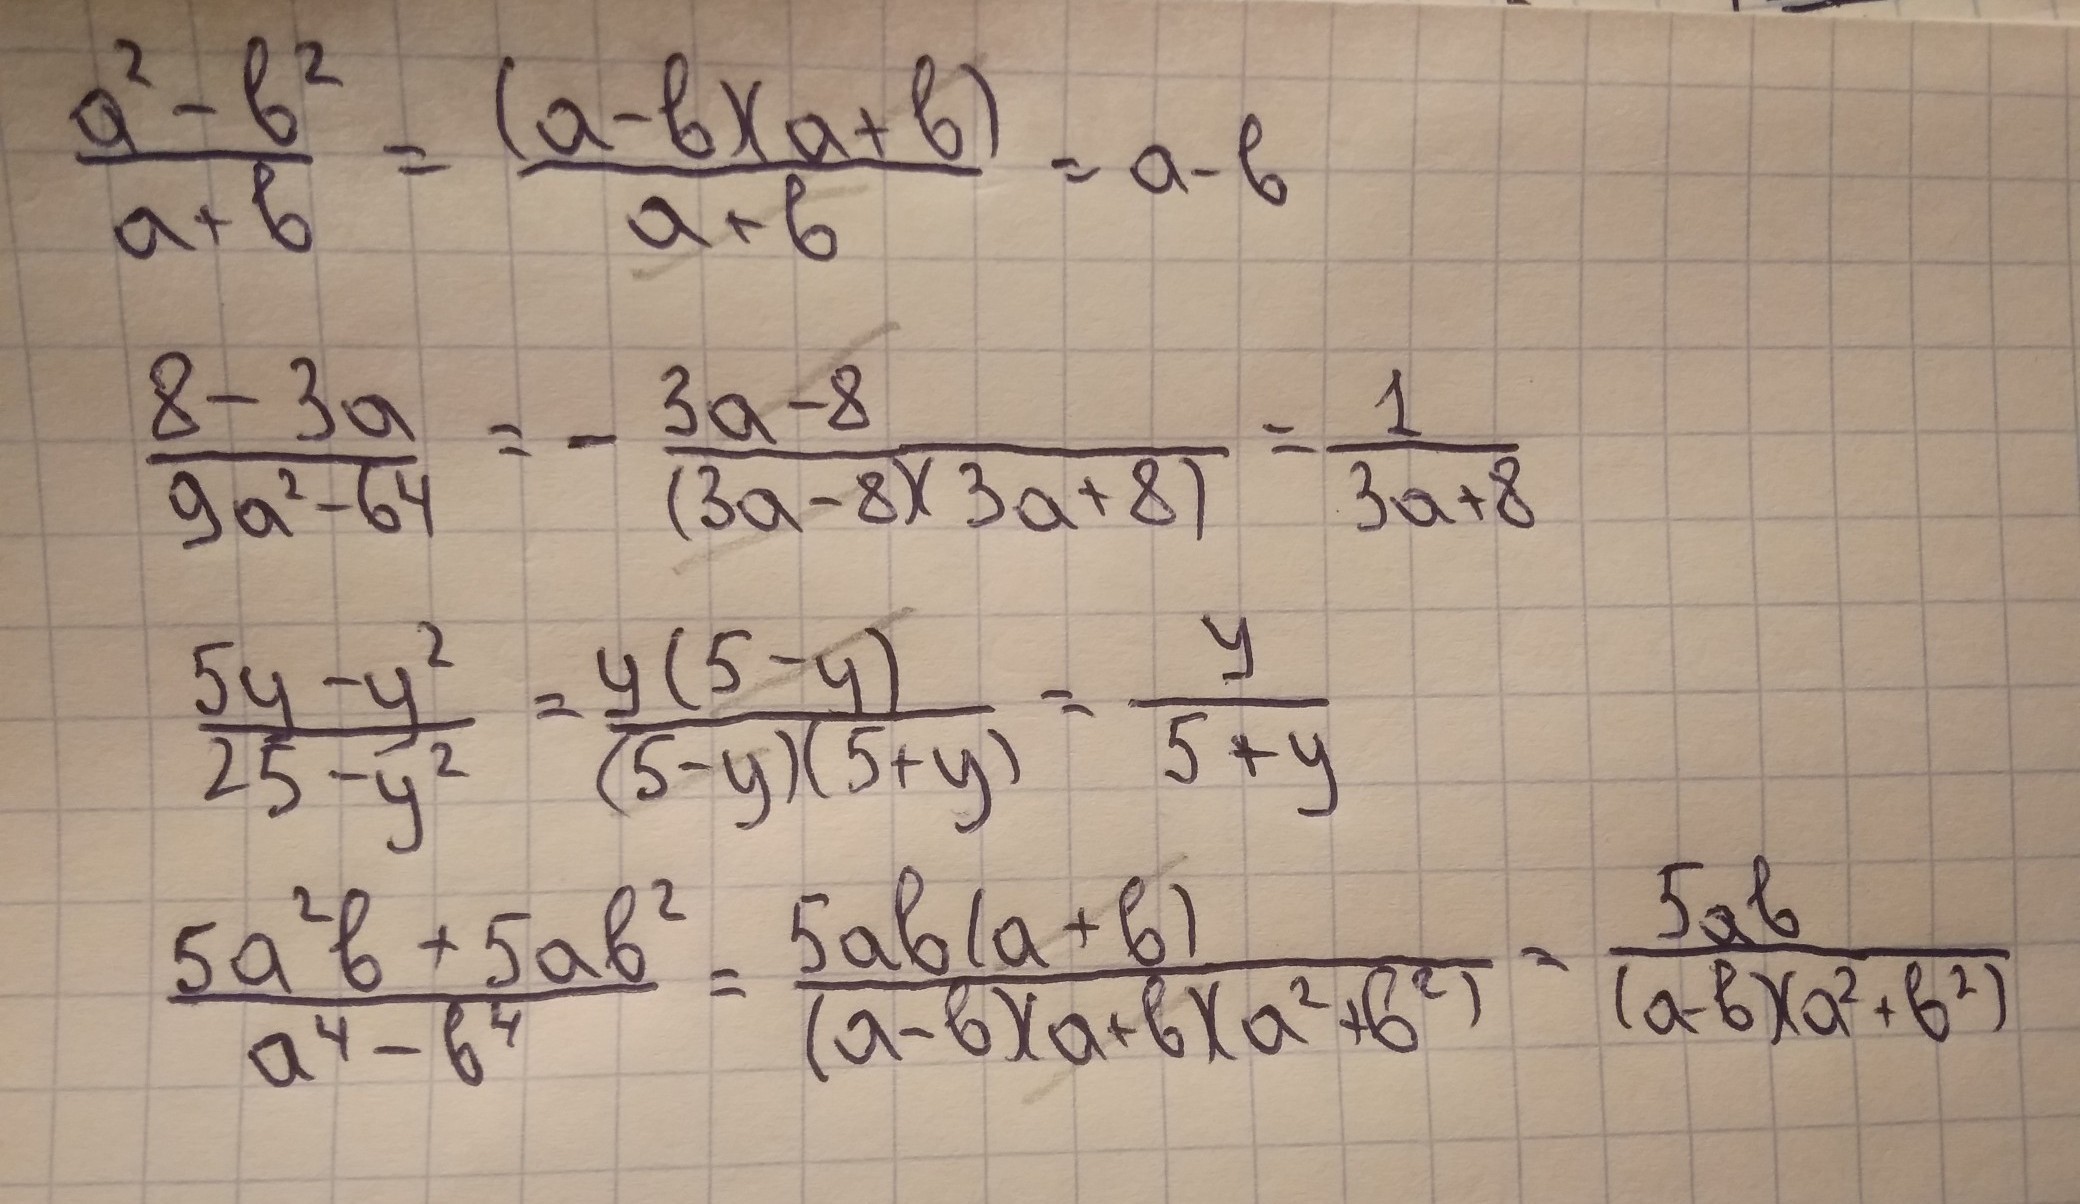 (a² - b²)/(a + b) = ((a - b)(a + b))/(a + b) = a - b
(8 - 3a)/(9a² - 64) = - (3a - 8)/((3a - 8)(3a + 8)) = 1/(3a + 8)
(5y - y²)/(25 - y²) = (y(5 - y))/((5 - y)(5 + y)) = y/(5 + y)
(5a²b + 5ab²)/(a⁴ - b⁴) = (5ab(a + b))/((a - b)(a + b)(a² + b²)) = 5ab/((a - b)(a² + b²))